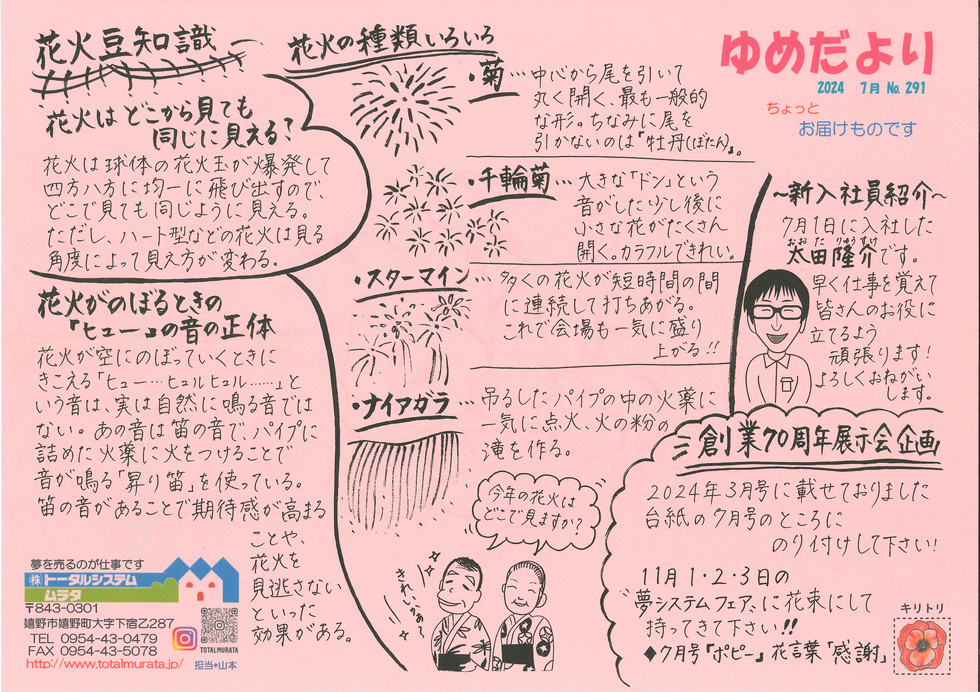 ゆめだより
2024 7月 No. 291
ちょっと
お届けものです
花火豆知識
花火はどこから見ても
同じに見える?
花火は球体の花火玉が爆発して
四方八方に均一に飛び出すので、
どこで見ても同じように見える。
ただし、ハート型などの花火は見る
角度によって見え方が変わる。
花火がのぼるときの
「ヒュー」の音の正体
花火が空にのぼっていくときに
きこえる「ヒュー…ヒュルヒュル……」と
いう音は、実は自然に鳴る音では
ない。あの音は笛の音で、パイプに
詰めた火薬に火をつけることで
音が鳴る「昇り笛」を使っている。
笛の音があることで期待感が高まる
ことや、
花火を
見逃さない
といった
効果がある。
花火の種類いろいろ
・菊…中心から尾を引いて
丸く開く、最も一般的
な形。ちなみに尾を
引かないのは『牡丹(ぼたん)』。
・千輪菊…大きな「ドン」という
音がした少し後に
小さな花がたくさん
開く。カラフルできれい。
・スターマイン…多くの花火が短時間の間
に連続して打ちあがる。
これで会場も一気に盛り
上がる!!
・ナイアガラ…吊るしたパイプの中の火薬に
一気に点火、火の粉の
滝を作る。
今年の花火は
どこで見ますか?
きれいかね〜
〜新入社員紹介〜
7月1日に入社した
おおた りゅうすけ
太田隆介です。
早く仕事を覚えて
皆さんのお役に
立てるよう
頑張ります!
よろしくおねがい
します。
創業70周年展示会企画
2024年3月号に載せておりました
台紙の7月号のところに
のり付けして下さい!
11月1・2・3日の
〝夢システムフェア〟に花束にして
持ってきて下さい!!
◆7月号『ポピー』花言葉「感謝」
キリトリ
夢を売るのが仕事です
㈱トータルシステム
ムラタ
〒843-0301
嬉野市嬉野町大字下宿乙287
TEL 0954-43-0479
FAX 0954-43-5078
http://www.totalmurata.jp/
TOTALMURATA
担当*山本